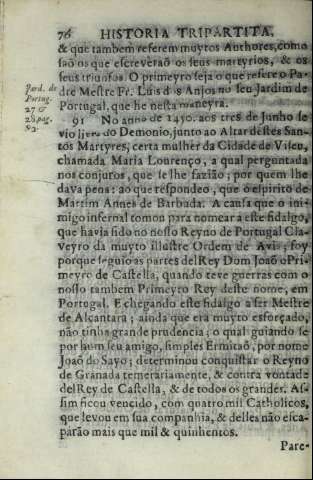 76 HISTORIA TRIPARTITA,
& que tambem referem muytos Authores, como
saõ os que escreveraõ os seus martyrios, & os
seus triunfos. O primeyro seja o que refere o Pa-
dre Mestre Fr. Luis dos Anjos no seu Jardim de
Portugal, que he nesta maneyra.
Jard. de
Portug.
27 &
28. pag.
82.
91 No anno de 1450. aos tres de Junho se
vio livre do Demonio, junto ao Altar destes San-
tos Martyres, certa mulher da Cidade de Viseu,
chamada Maria Lourenço, a qual perguntada
nos conjuros, que se lhe faziaõ; por quem lhe
dava pena: ao que respondeo, que o espirito de
Martim Annes de Barbuda. A causa que o ini-
migo infernal tomou para nomear a este fidalgo,
que havia sido no nosso Reyno de Portugal Cla-
veyro da muyto illustre Ordem de Avis; foy
porque seguio as partes delRey Dom Joaõ o Pri-
meyro de Castella, quando teve guerras com o
nosso tambem Primeyro Rey deste nome, em
Portugal. E chegando este fidalgo a ser Mestre
de Alcantara; ainda que era muyto esforçado,
não tinha grande prudencia; o qual guiando se
por hum seu amigo, simples Ermitaõ, por nome
Joaõ do Sayo; determinou conquistar o Reyno
de Granada temerariamente, & contra vontade
delRey de Castella, & de todos os grandes. As-
sim ficou vencido, com quatro mil Catholicos,
que levou em sua companhia, & delles não esca-
párão mais que mil & quinhentos.
Pare-